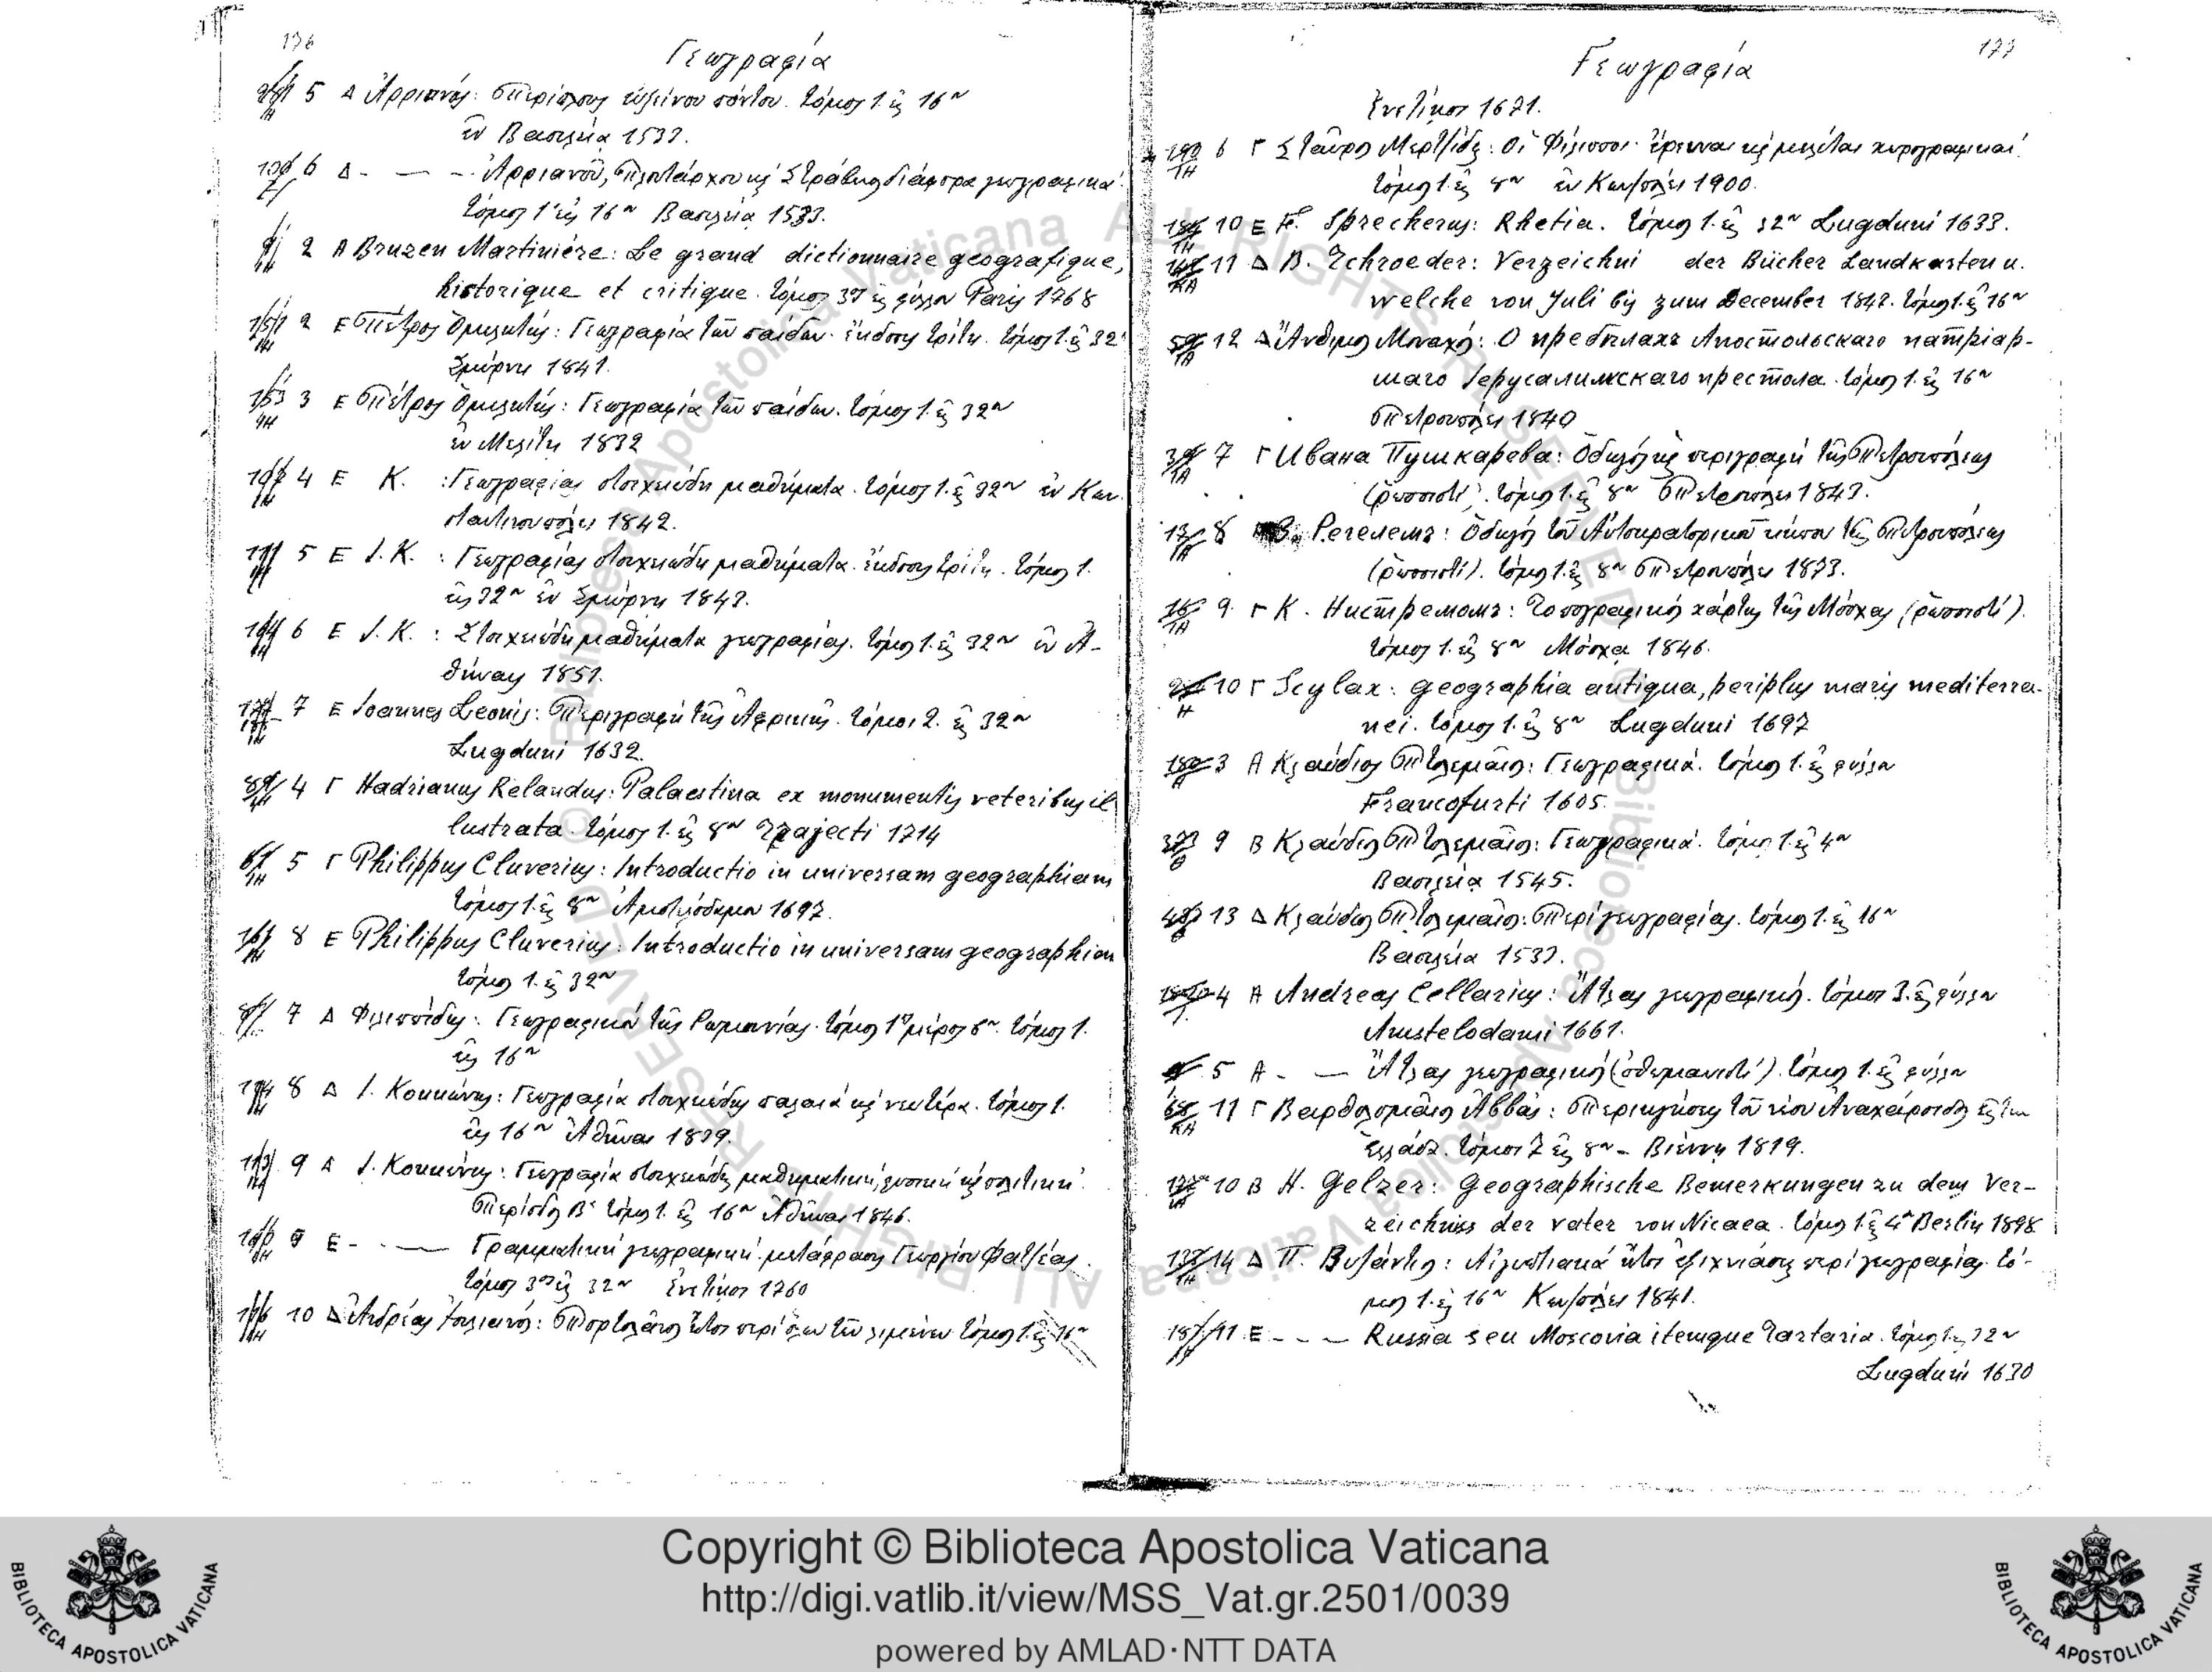 176
Γεωγραφία
5 Δ Ἀρριανός: Περίπλους εὐξείνου πόντου. τόμος 1. εἰς 16ον
ἐν Βασιλείᾳ 1533.
6 Δ - — - Ἀρριανοῦ, Πλουτάρχου κς Στράβωνος διάφορα γεωγραφικά.
τόμος 1 εἰς 16ον Βασιλείᾳ 1533.
2 Α Bruzen Martiniére: Le grand dictionnaire geografique,
historique et critique. τόμος 3ος εἰς φύλλον Paris 1768
2 Ε Πέτρος Ὁμηλητής: Γεωγραφία τῶν παίδων. ἔκδοσις τρίτη. τόμος 1. εἰς 32
Σμύρνη 1841.
3 Ε Πέτρος Ὁμηλητής: Γεωγραφία τῶν παίδων. τόμος 1. εἰς 32ον
ἐν Μελίτῃ 1832
4 Ε Κ. : Γεωγραφίας στοιχειώδη μαθήματα. τόμος 1. εἰς 32ον ἐν Κων
σταντινουπόλει 1842.
5 Ε Ι. Κ. : Γεωγραφίας στοιχειώδη μαθήματα. ἔκδοσις τρίτη. τόμος 1.
εἰς 32ον ἐν Σμύρνῃ 1843.
6 Ε Ι. Κ. : Στοιχειώδη μαθήματα γεωγραφίας. τόμος 1. εἰς 32ον ἐν Ἀ-
θήναις 1851.
7 Ε Ioannes Leonis: Περιγραφὴ τῆς Ἀφρικῆς. τόμοι 2. εἰς 32ον
Lugduni 1632.
4 Γ Hadrianus Relandus: Palaestina ex monumentis veteribus il
lustrata. τόμος 1. εἰς 8ον Trajecti 1714
5 Γ Philippus Cluverius: Introductio in universam geographiam
τόμος 1. εἰς 8ον Ἀμστελόδαμον 1697.
8 Ε Philippus Cluverius: Introductio in universam geographiam
τόμος 1. εἰς 32ον
7 Δ Φιλιππίδης: Γεωγραφικὸν τῆς Ρωμουνίας. τόμος 1ος μέρος τόμος 1.
εἰς 16ον
8 Δ Ι. Κοκκώνης: Γεωγραφία στοιχειώδης παλαιὰ κς νεωτέρα. τόμος 1.
εἰς 16ον Ἀθῆναι 1839.
9 Δ Ι. Κοκκώνης: Γεωγραφία στοιχειώδης μαθηματική, φυσικὴ κς πολιτική.
Περίοδος Β΄ τόμος 1. εἰς 16ον Ἀθῆναι 1846.
9 Ε - - — Γραμματικὴ γεωγραφικὴ μετάφρασις Γεωργίου Φατζέας.
τόμος 3ος εἰς 32ον Ἐνετίῃσι 1760
10 Δ Ἀνδρέας Πορτολάνος ἤτοι περὶ ὅλων τῶν λιμένων τόμος 1. εἰς 16ον
177
Γεωγραφία
Ἐνετίῃσι 1671.
6 Γ Σταῦρος Μερτζίδης: Οἱ Φίλιπποι. ἔρευναι κς μελέται χωρογραφικαί.
τόμος 1. εἰς 8ον ἐν Κων/πόλει 1900.
10 Ε F. Sprecherus: Rhetia. τόμος 1. εἰς 32ον Lugduni 1633.
11 Δ B. Schroeder: Verzeichni der Bücher Landkarten u.
welche von Juli bis zum December 1842. τόμος 1. εἰς 16ον
12 Δ Ἄνθιμος Μοναχός: О предѣлахъ Апостольскаго патріар-
шаго Іерусалимскаго престола. τόμος 1. εἰς 16ον
Πετρουπόλει 1840
7 Γ Ивана Пушкарева: Ὁδηγὸς κς περιγραφὴ τῆς Πετρουπόλεως
(ῥωσσιστί). τόμος 1. εἰς 8ον Πετρουπόλει 1843.
8 Β. Регелемъ: Ὁδηγὸς τοῦ Αὐτοκρατορικοῦ κήπου τῆς Πετρουπόλεως
(ῥωσσιστί). τόμος 1. εἰς 8ον Πετρουπόλει 1873.
9 Γ Κ. Нистремомъ: Τοπογραφικὸς χάρτης τῆς Μόσχας (ῥωσσιστί).
τόμος 1. εἰς 8ον Μόσχᾳ 1846.
10 Γ Scylax: geographia antiqua, periplus maris mediterra-
nei. τόμος 1. εἰς 8ον Lugduni 1697
3 Α Κλαύδιος Πτολεμαῖος: Γεωγραφικά. τόμος 1. εἰς φύλλον
Francofurti 1605.
9 Β Κλαύδιος Πτολεμαῖος: Γεωγραφικά. τόμος 1. εἰς 4ον
Βασιλείᾳ 1545.
13 Δ Κλαύδιος Πτολεμαῖος: Περὶ γεωγραφίας. τόμος 1. εἰς 16ον
Βασιλείᾳ 1533.
4 Α Andreas Cellarius: Ἄτλας γεωγραφικός. τόμοι 3. εἰς φύλλον
Amstelodami 1661.
5 Α - — Ἄτλας γεωγραφικός (ὀθωμανιστί). τόμος 1. εἰς φύλλον
11 Γ Βαρθολομαῖος Ἀββᾶς: Περιηγήσεις τοῦ νέου Ἀναχάρσιδος εἰς τὴν
Ἑλλάδα. τόμοι 7 εἰς 8ον - Βιέννῃ 1819.
10 Β H. Gelzer: Geographische Bemerkungen zu dem Ver-
zeichniss der vater von Nicaea. τόμος 1. εἰς 4ον Berlin 1898
14 Δ Π. Βυζάντιος: Αἰγυπτιακὰ ἤτοι ἐξιχνίασις περὶ γεωγραφίας. τό-
μος 1. εἰς 16ον Κων/πόλει 1841.
11 Ε - - — Russia seu Moscovia itemque Tartaria. τόμος 1. εἰς 32ον
Lugduni 1630
Copyright © Biblioteca Apostolica Vaticana
http://digi.vatlib.it/view/MSS_Vat.gr.2501/0039
powered by AMLAD·NTT DATA
BIBLIOTECA APOSTOLICA VATICANA
BIBLIOTECA APOSTOLICA VATICANA